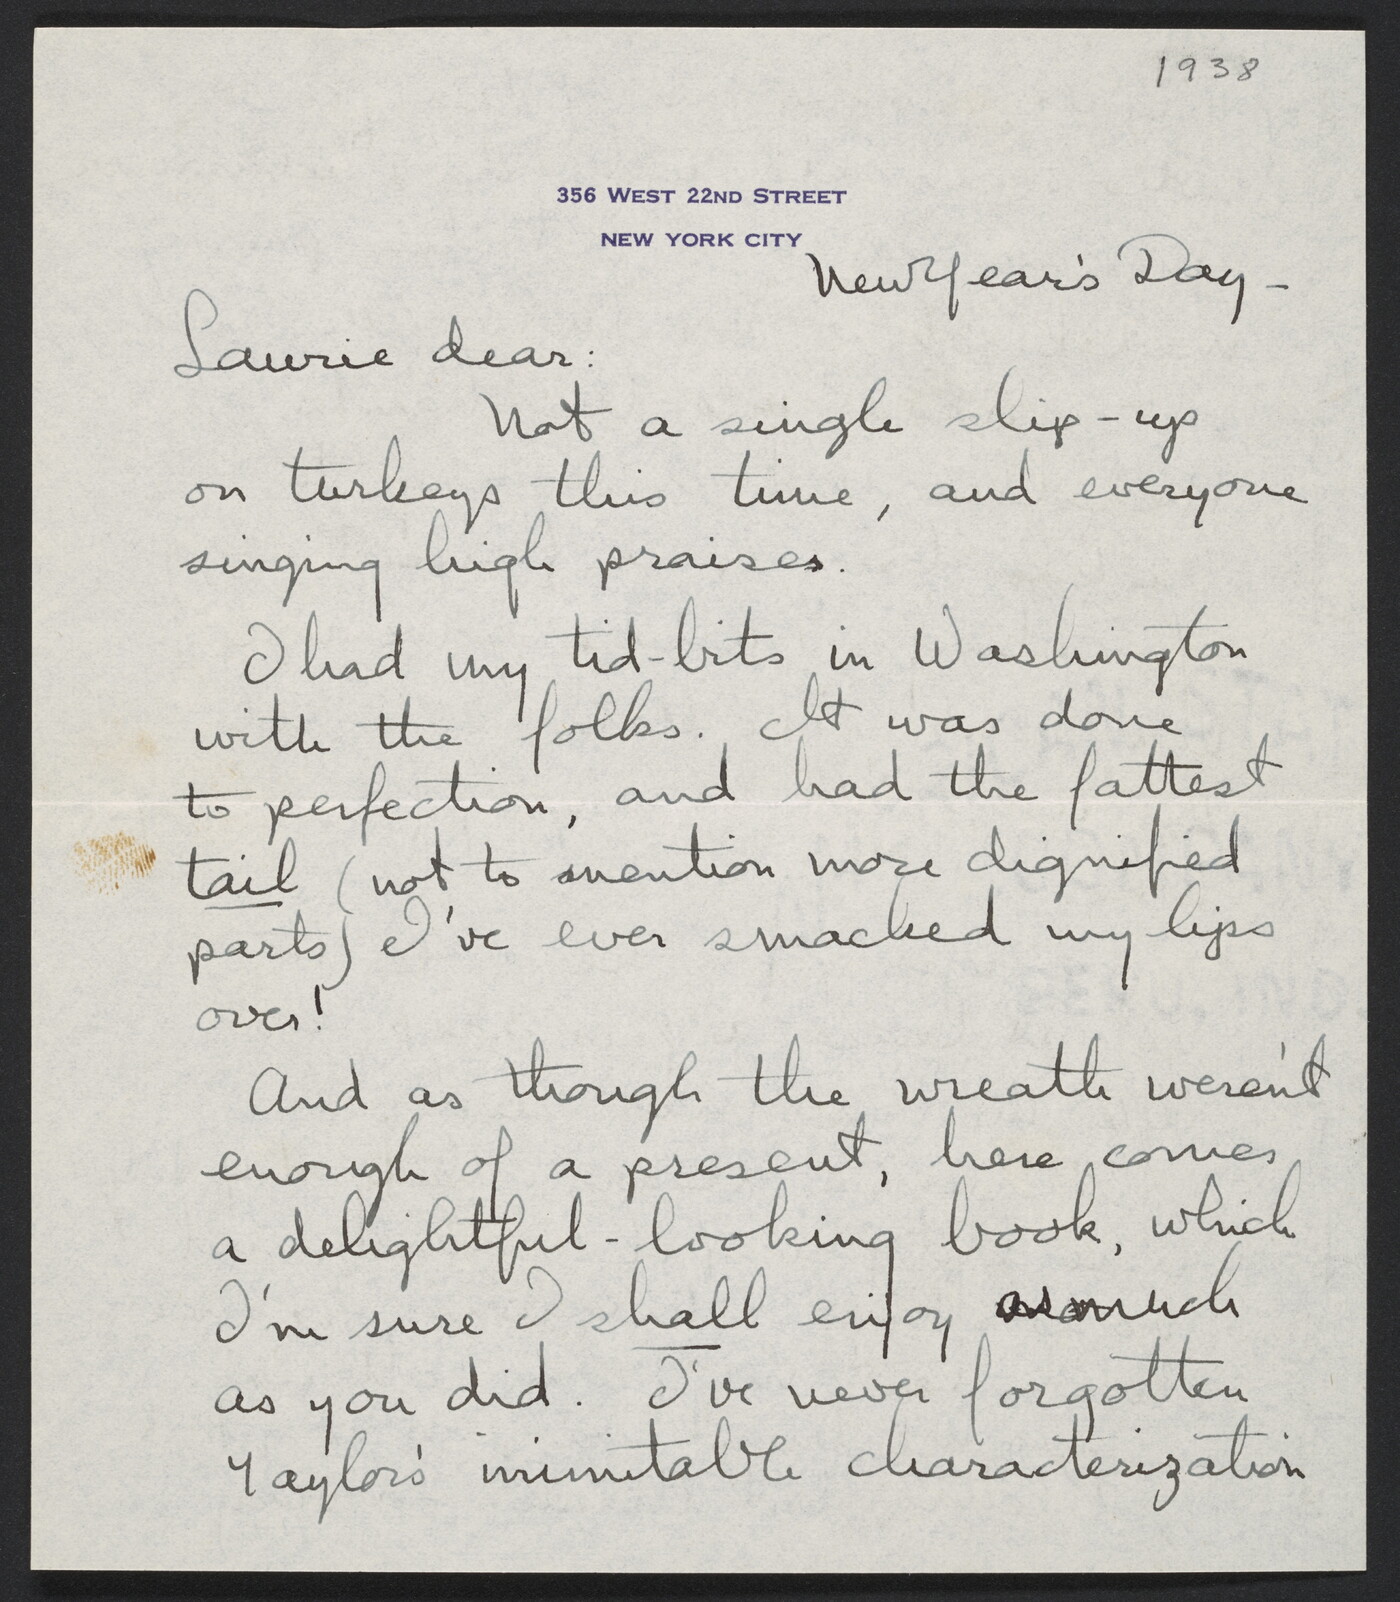 1938
356 WEST 22ND STREET
NEW YORK CITY
New Year's Day -
Laurie dear:
Not a single slip-up
on turkeys this time, and everyone
singing high praises.
I had my tid-bits in Washington
with the folks. It was done
to perfection, and had the fattest
tail (not to mention more dignified
parts) I've ever smacked my lips
over!
And as though the wreath weren't
enough of a present, here comes
a delightful-looking book, which
I'm sure I shall enjoy as much
as you did. I've never forgotten
Taylor's inimitable characterization